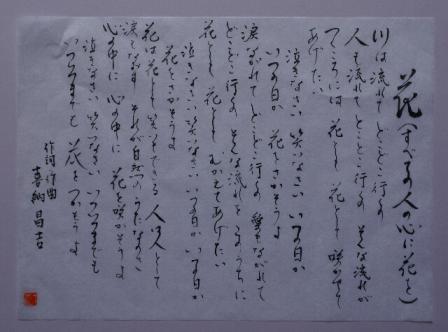 花（すべての人の心に花を）
川は流れて どこどこ行くの
人も流れて どこどこ行くの そんな流れが
つくころには 花として 花として 咲かせて
あげたい
泣きなさい 笑いなさい いつの日か
いつの日か 花をさかそうよ
涙ながれて どこどこ行くの 愛もながれて
どこどこ行くの そんな流れを このうちに
花として 花として むかえてあげたい
泣きなさい 笑いなさい いつの日か いつの日か
花をさかそうよ
花は花として 笑いもできる 人は人として
涙もながす それが自然のうたなのさ
心の中に 心の中に 花を咲かそうよ
泣きなさい 笑いなさい いついつまでも
いついつまでも 花をつかもうよ
作詞 作曲
喜納昌吉